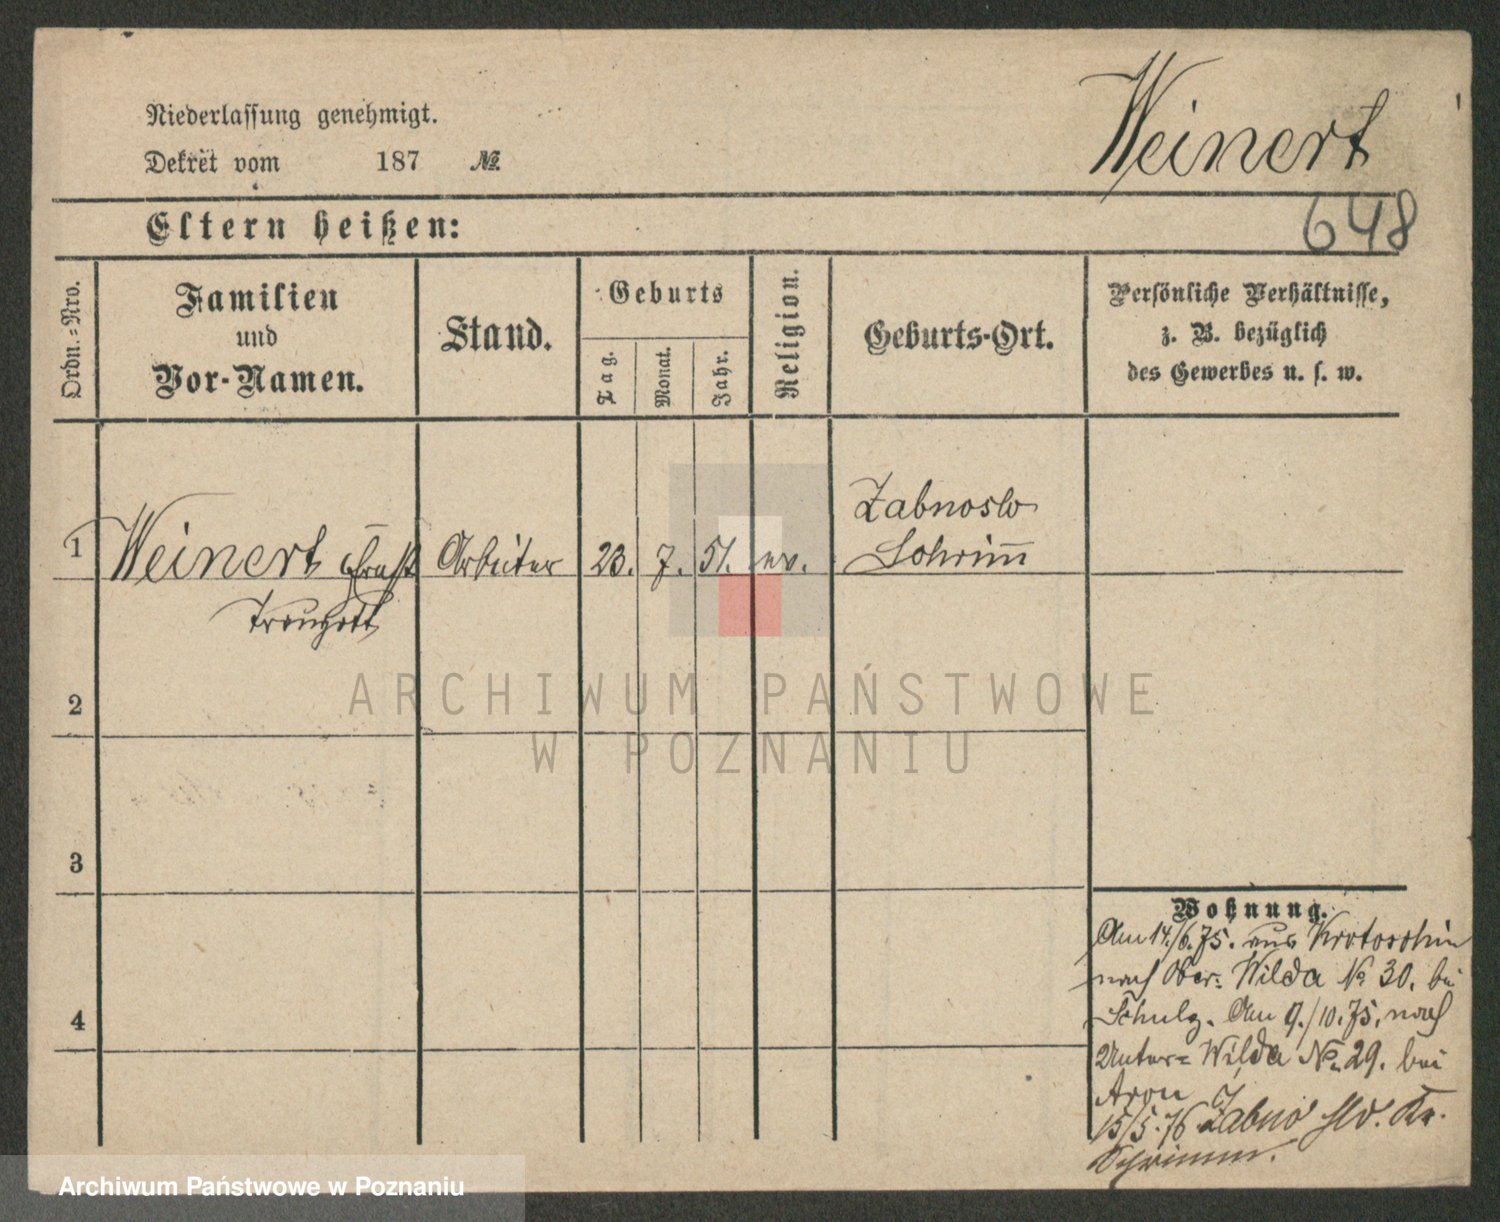 Niederlassung genehmigt.
Dekret vom 187 №
Weinert
648
Eltern heißen:
Ordn.=Nro.
Familien
und
Vor-Namen.
Stand.
Geburts
Tag.
Monat.
Jahr.
Religion.
Geburts-Ort.
Persönliche Verhältnisse,
z. B. bezüglich
des Gewerbes u. s. w.
1 Weinert Ernst Arbeiter 23. 7. 51. ev.
Traugott
Zabnosko
Schrim̅
2
3
4
Wohnung.
Am 14./6. 75. aus Krotoschin
nach Ober= Wilda № 30. bei
Schulz. Am 9./10. 75. nach
Unter= Wilda No 29. bei
Aron
15/5. 76 Zabno Kr.
Schrimm.
ARCHIWUM PAŃSTWOWE
W POZNANIU
Archiwum Państwowe w Poznaniu